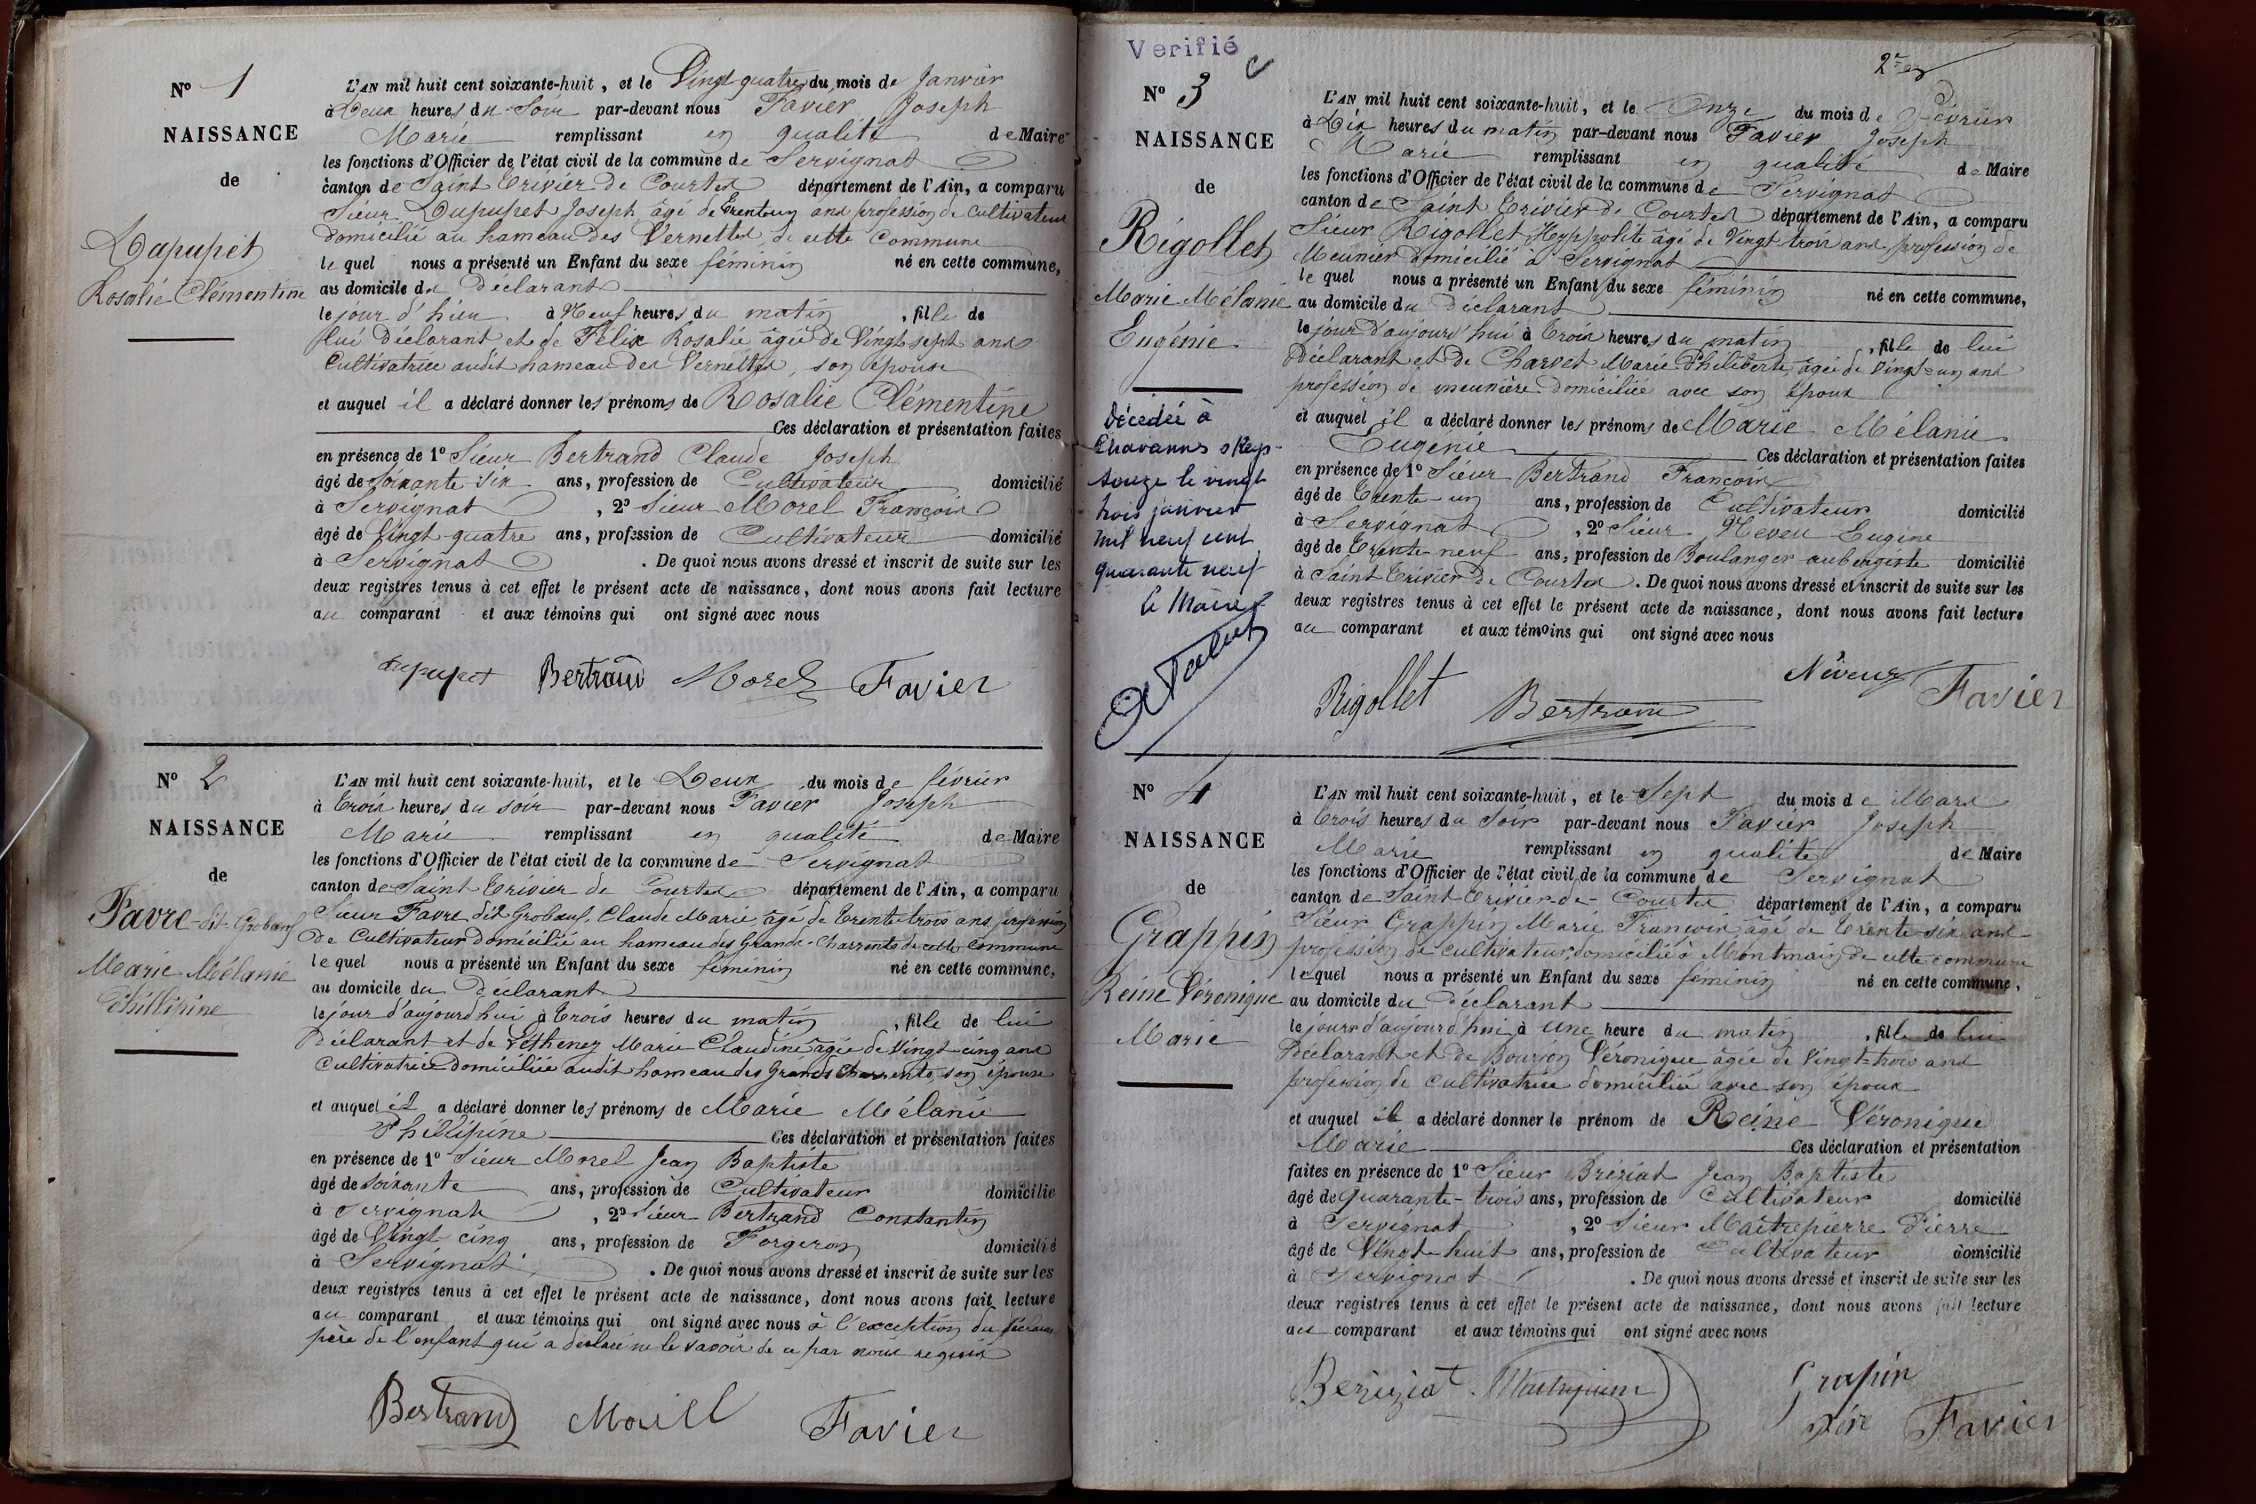 Nº 1
NAISSANCE
de
Dupupet
Rosalie Clémentine
L'AN mil huit cent soixante-huit, et le Vingt quatre du mois de Janvier
à Deux heures du Soir par-devant nous Favier Joseph
Marie remplissant en qualité de Maire
les fonctions d'Officier de l'état civil de la commune de Servignat
canton de Saint Trivier de Courtes département de l'Ain, a comparu
Sieur Dupupet Joseph âgé de Trente un ans profession de Cultivateur
domicilié au hameau des Vernettes de cette Commune
le quel nous a présenté un Enfant du sexe féminin né en cette commune,
au domicile du Déclarant
le jour d'hier à Neuf heures du matin, fille de
lui déclarant et de Félix Rosalie âgée de Vingt sept ans
Cultivatrice audit hameau des Vernettes, son épouse
et auquel il a déclaré donner les prénoms de Rosalie Clémentine
Ces déclaration et présentation faites
en présence de 1º Sieur Bertrand Claude Joseph
âgé de soixante six ans, profession de Cultivateur domicilié
à Servignat, 2º Sieur Morel François
âgé de Vingt-quatre ans, profession de Cultivateur domicilié
à Servignat. De quoi nous avons dressé et inscrit de suite sur les
deux registres tenus à cet effet le présent acte de naissance, dont nous avons fait lecture
au comparant et aux témoins qui ont signé avec nous
dupupet Bertrand Morel Favier
Nº 2
NAISSANCE
de
Favre-dit-Grobœuf
Marie Mélanie
Phillipine
L'AN mil huit cent soixante-huit, et le Deux du mois de février
à Trois heures du soir par-devant nous Favier Joseph
Marie remplissant en qualité de Maire
les fonctions d'Officier de l'état civil de la commune de Servignat
canton de Saint Trivier de Courtes département de l'Ain, a comparu
Sieur Favre dit Grobœuf, Claude Marie âgé de Trente trois ans profession
de Cultivateur domicilié au hameau des Grands-Charrents de cette commune
le quel nous a présenté un Enfant du sexe féminin né en cette commune,
au domicile du déclarant
le jour d'aujourd'hui à Trois heures du matin, fille de lui
Déclarant et de Marie Claudine âgée de Vingt-cinq ans
Cultivatrice domiciliée audit hameau des Grands Charrents, son épouse
et auquel il a déclaré donner les prénoms de Marie Mélanie
Phillipine Ces déclaration et présentation faites
en présence de 1º Sieur Morel Jean Baptiste
âgé de soixante ans, profession de Cultivateur domicilié
à Servignat, 2º Sieur Bertrand Constantin
âgé de Vingt cinq ans, profession de Forgeron domicilié
à Servignat. De quoi nous avons dressé et inscrit de suite sur les
deux registres tenus à cet effet le présent acte de naissance, dont nous avons fait lecture
au comparant et aux témoins qui ont signé avec nous à l'exception du
père de l'enfant qui a déclaré ne le savoir de ce par nous requis
Bertrand Morel Favier
Verifié
2
Nº 3
NAISSANCE
de
Rigollet
Marie Mélanie
Eugénie
Décédée à
Chavannes s/Rey-
souze le vingt
trois janvier
mil neuf cent
quarante neuf
Le Maire
L'AN mil huit cent soixante-huit, et le Onze du mois de Février
à Dix heures du matin par-devant nous Favier Joseph
Marie remplissant en qualité de Maire
les fonctions d'Officier de l'état civil de la commune de Servignat
canton de Saint Trivier de Courtes département de l'Ain, a comparu
Sieur Rigollet Hyppolite âgé de Vingt trois ans profession de
Meunier domicilié à Servignat
le quel nous a présenté un Enfant du sexe féminin né en cette commune,
au domicile du Déclarant
le jour d'aujourd'hui à Trois heures du matin, fille de lui
Déclarant et de Charvet Marie Philiberte âgée de Vingt-un ans
profession de meunière domiciliée avec son époux
et auquel il a déclaré donner les prénoms de Marie Mélanie
Eugénie Ces déclaration et présentation faites
en présence de 1º Sieur Bertrand François
âgé de Trente-un ans, profession de Cultivateur domicilié
à Servignat, 2º Sieur Neveu Eugène
âgé de Trente-neuf ans, profession de Boulanger aubergiste domicilié
à Saint Trivier de Courtes. De quoi nous avons dressé et inscrit de suite sur les
deux registres tenus à cet effet le présent acte de naissance, dont nous avons fait lecture
au comparant et aux témoins qui ont signé avec nous
Rigollet Bertrand Neveux Favier
Nº 4
NAISSANCE
de
Grappin
Reine Véronique
Marie
L'AN mil huit cent soixante-huit, et le Sept du mois de Mars
à Trois heures du Soir par-devant nous Favier Joseph
Marie remplissant en qualité de Maire
les fonctions d'Officier de l'état civil de la commune de Servignat
canton de Saint Trivier-de-Courtes département de l'Ain, a comparu
Sieur Grappin Marie François âgé de Trente-six ans
profession de cultivateur, domicilié à Montmain de cette commune
lequel nous a présenté un Enfant du sexe féminin né en cette commune,
au domicile du Déclarant
le jour d'aujourd'hui à Une heure du matin, fille de lui
Déclarant et de Bourdon Véronique âgée de Vingt-trois ans
profession de cultivatrice domiciliée avec son époux
et auquel il a déclaré donner le prénom de Reine Véronique
Marie Ces déclaration et présentation
faites en présence de 1º Sieur Bréziat Jean Baptiste
âgé de quarante-trois ans, profession de Cultivateur domicilié
à Servignat, 2º Sieur Maitrepierre Pierre
âgé de Vingt-huit ans, profession de Cultivateur domicilié
à Servignat. De quoi nous avons dressé et inscrit de suite sur les
deux registres tenus à cet effet le présent acte de naissance, dont nous avons fait lecture
au comparant et aux témoins qui ont signé avec nous
Bereziat Maitrepierre Grapin
père Favier